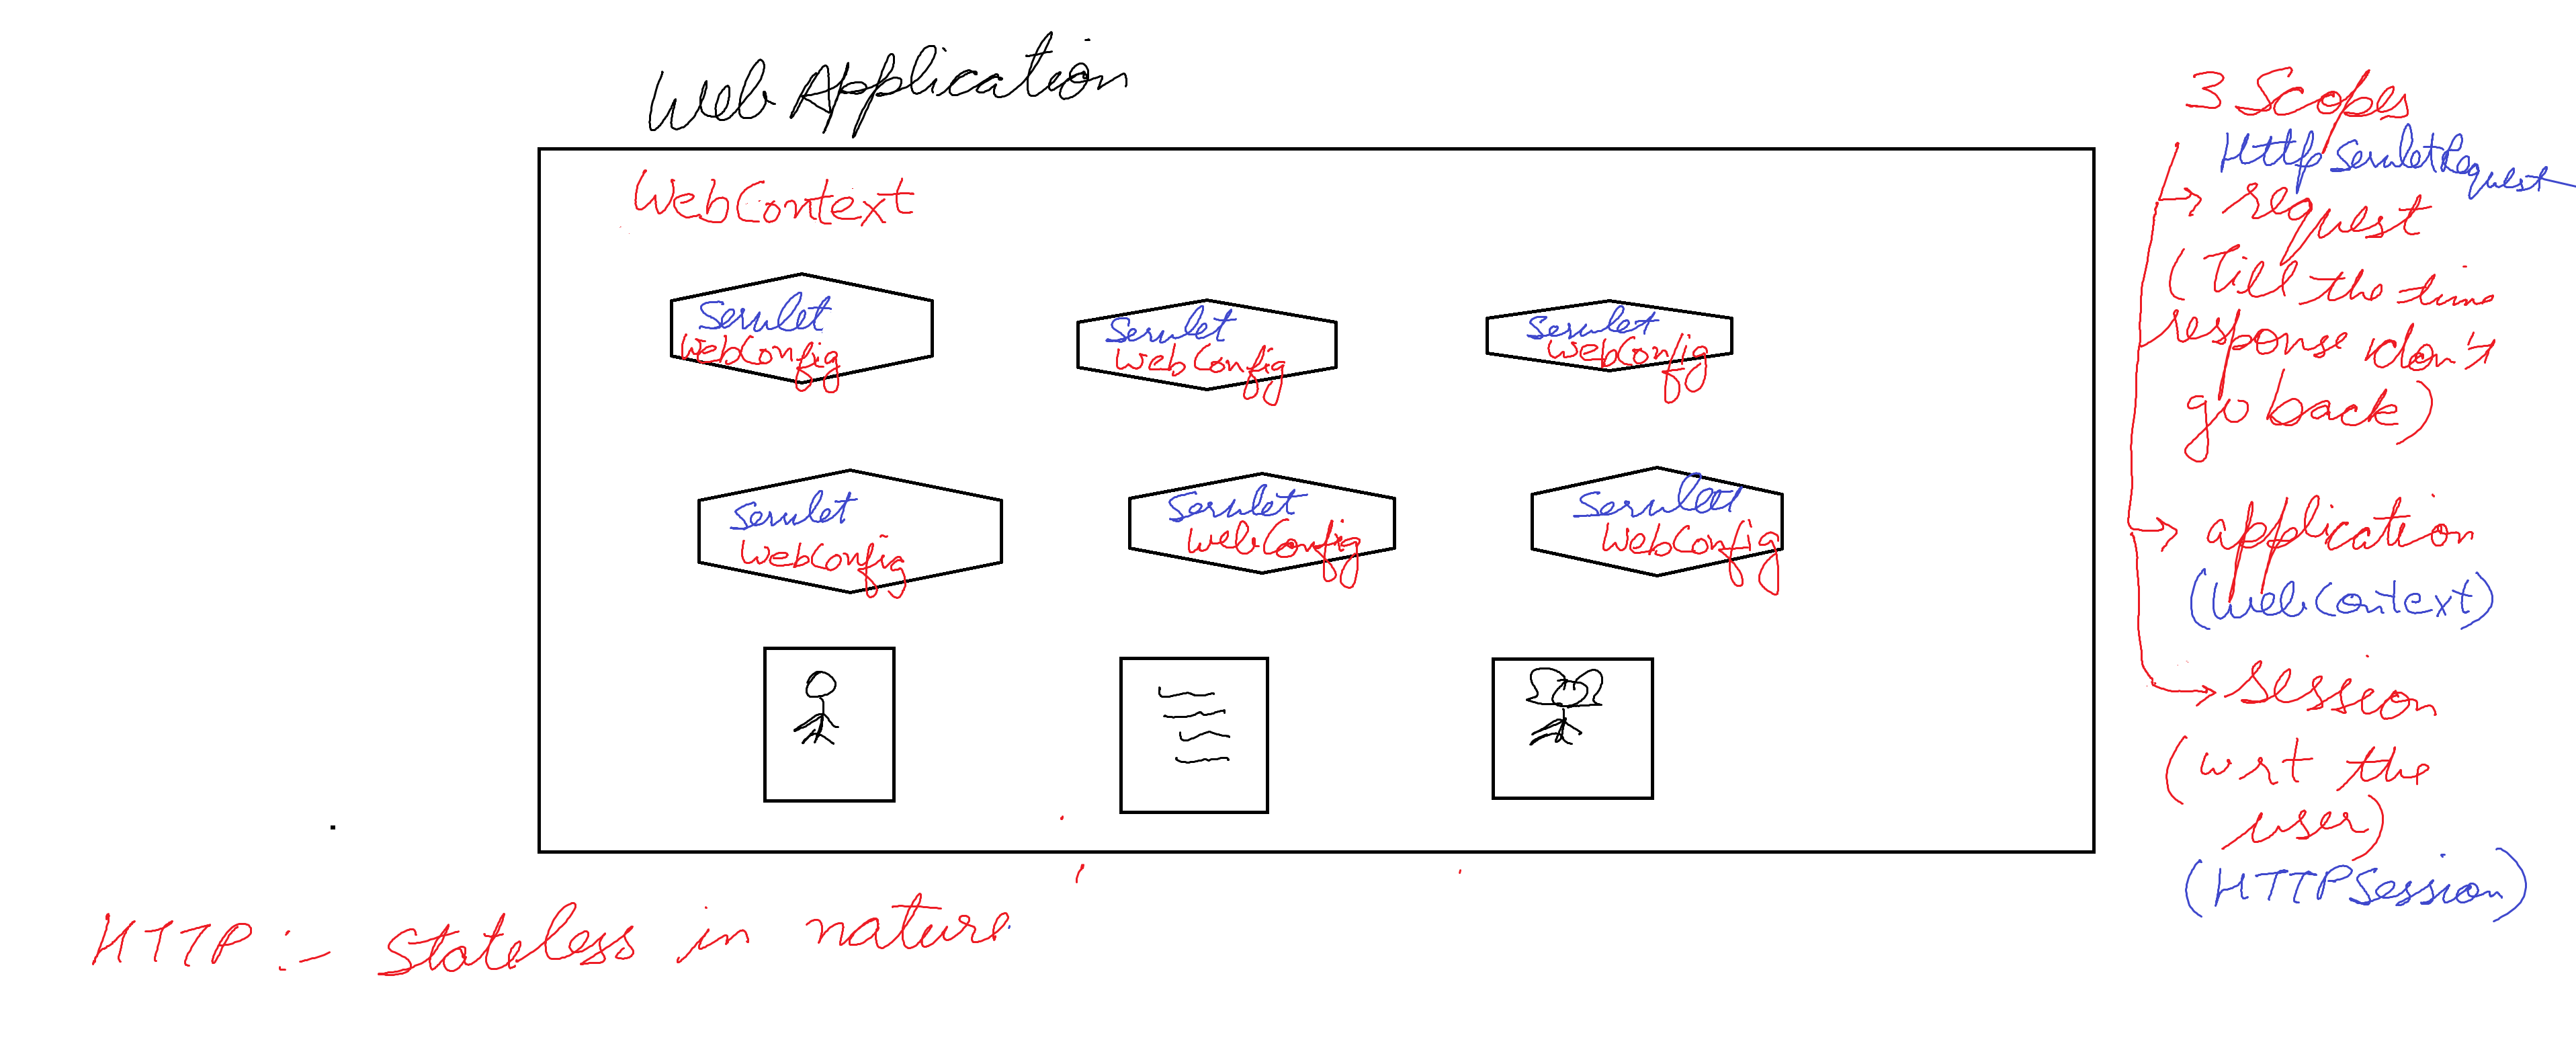 Web Application
WebContext
Servlet
WebConfig
Servlet
WebConfig
Servlet
WebConfig
Servlet
WebConfig
Servlet
WebConfig
Servlet
WebConfig
HTTP :- Stateless in nature
3 Scopes
HttpServletRequest
→ request
(Till the time
response don't
go back)
→ application
(WebContext)
→ session
(wrt the
user)
(HTTPSession)